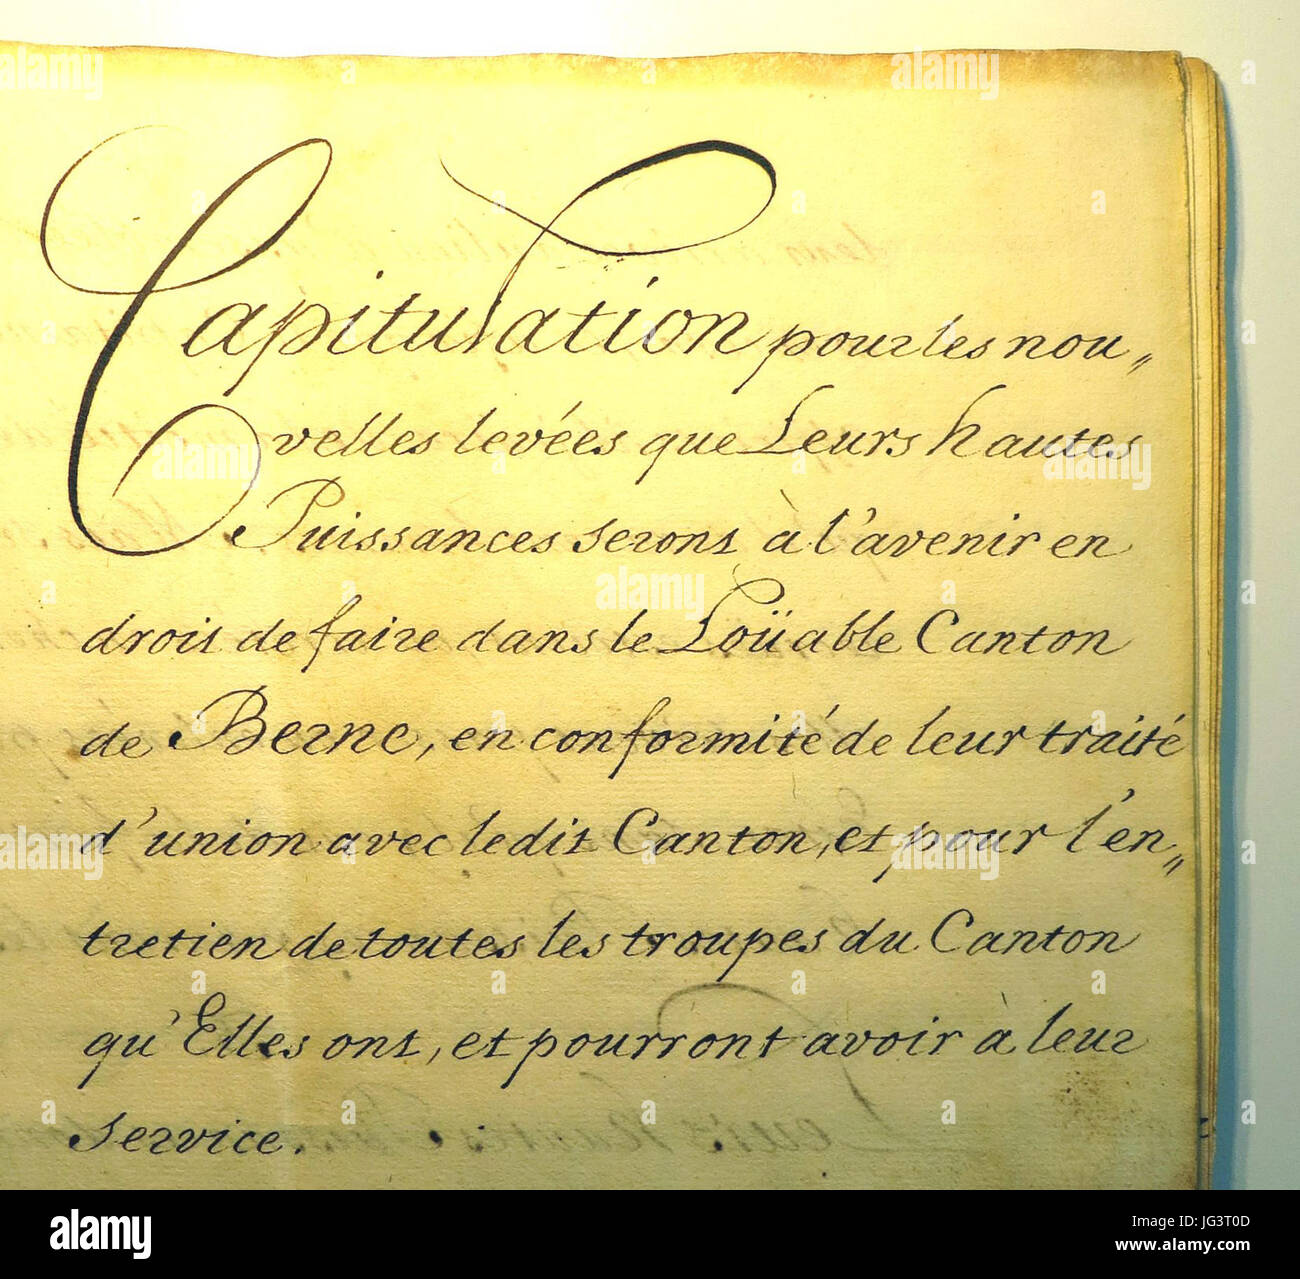 Capitulation pour les nou„
velles levées que Leurs hautes
Puissances seront à l'avenir en
droit de faire dans le Loüable Canton
de Berne, en conformité de leur traité
d'union avec ledit Canton, et pour l'en„
tretien de toutes les troupes du Canton
qu'Elles ont, et pourront avoir à leur
service.
alamy stock photo
JG3T0D
www.alamy.com